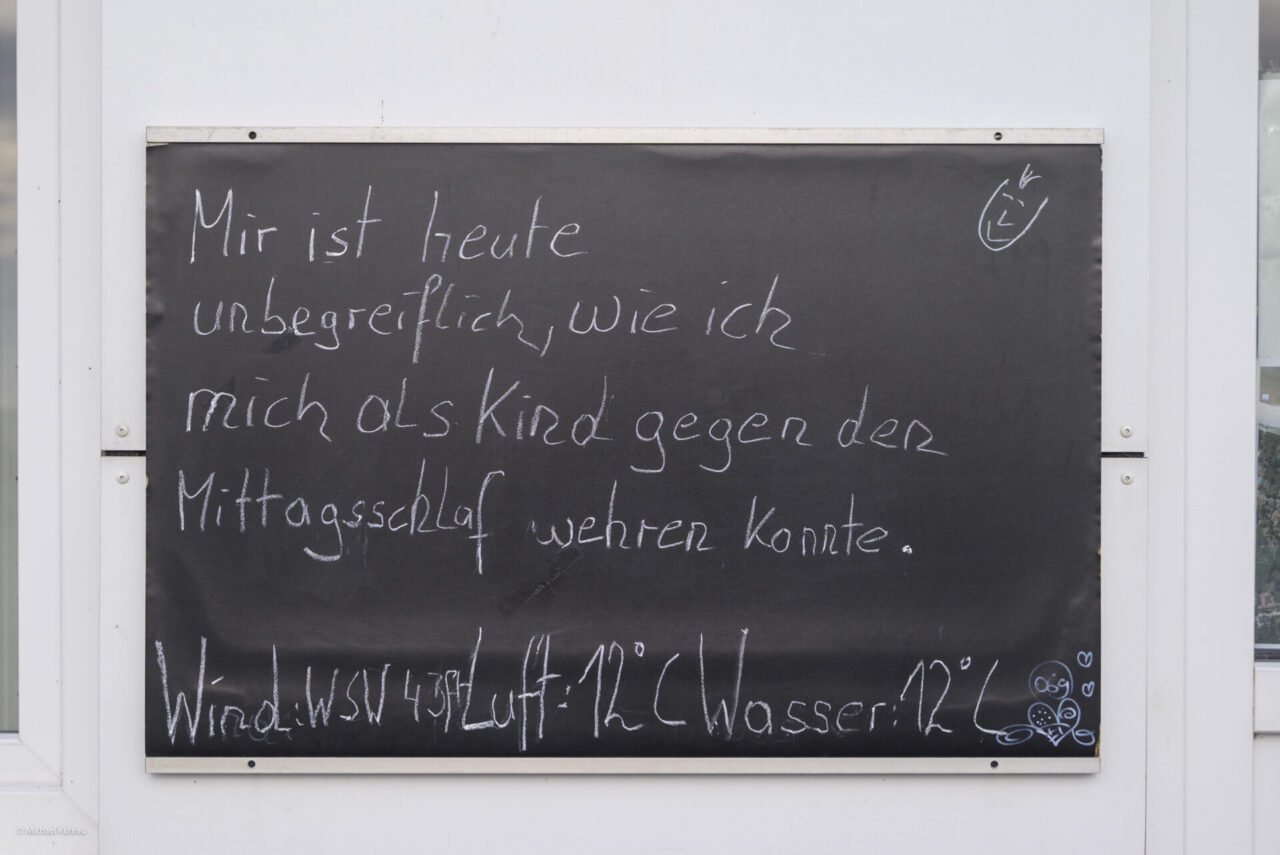 Mir ist heute
unbegreiflich, wie ich
mich als Kind gegen den
Mittagsschlaf wehren konnte.
Wind: WSW Luft: 12°C Wasser: 12°C
069
© Michael Kuhrau